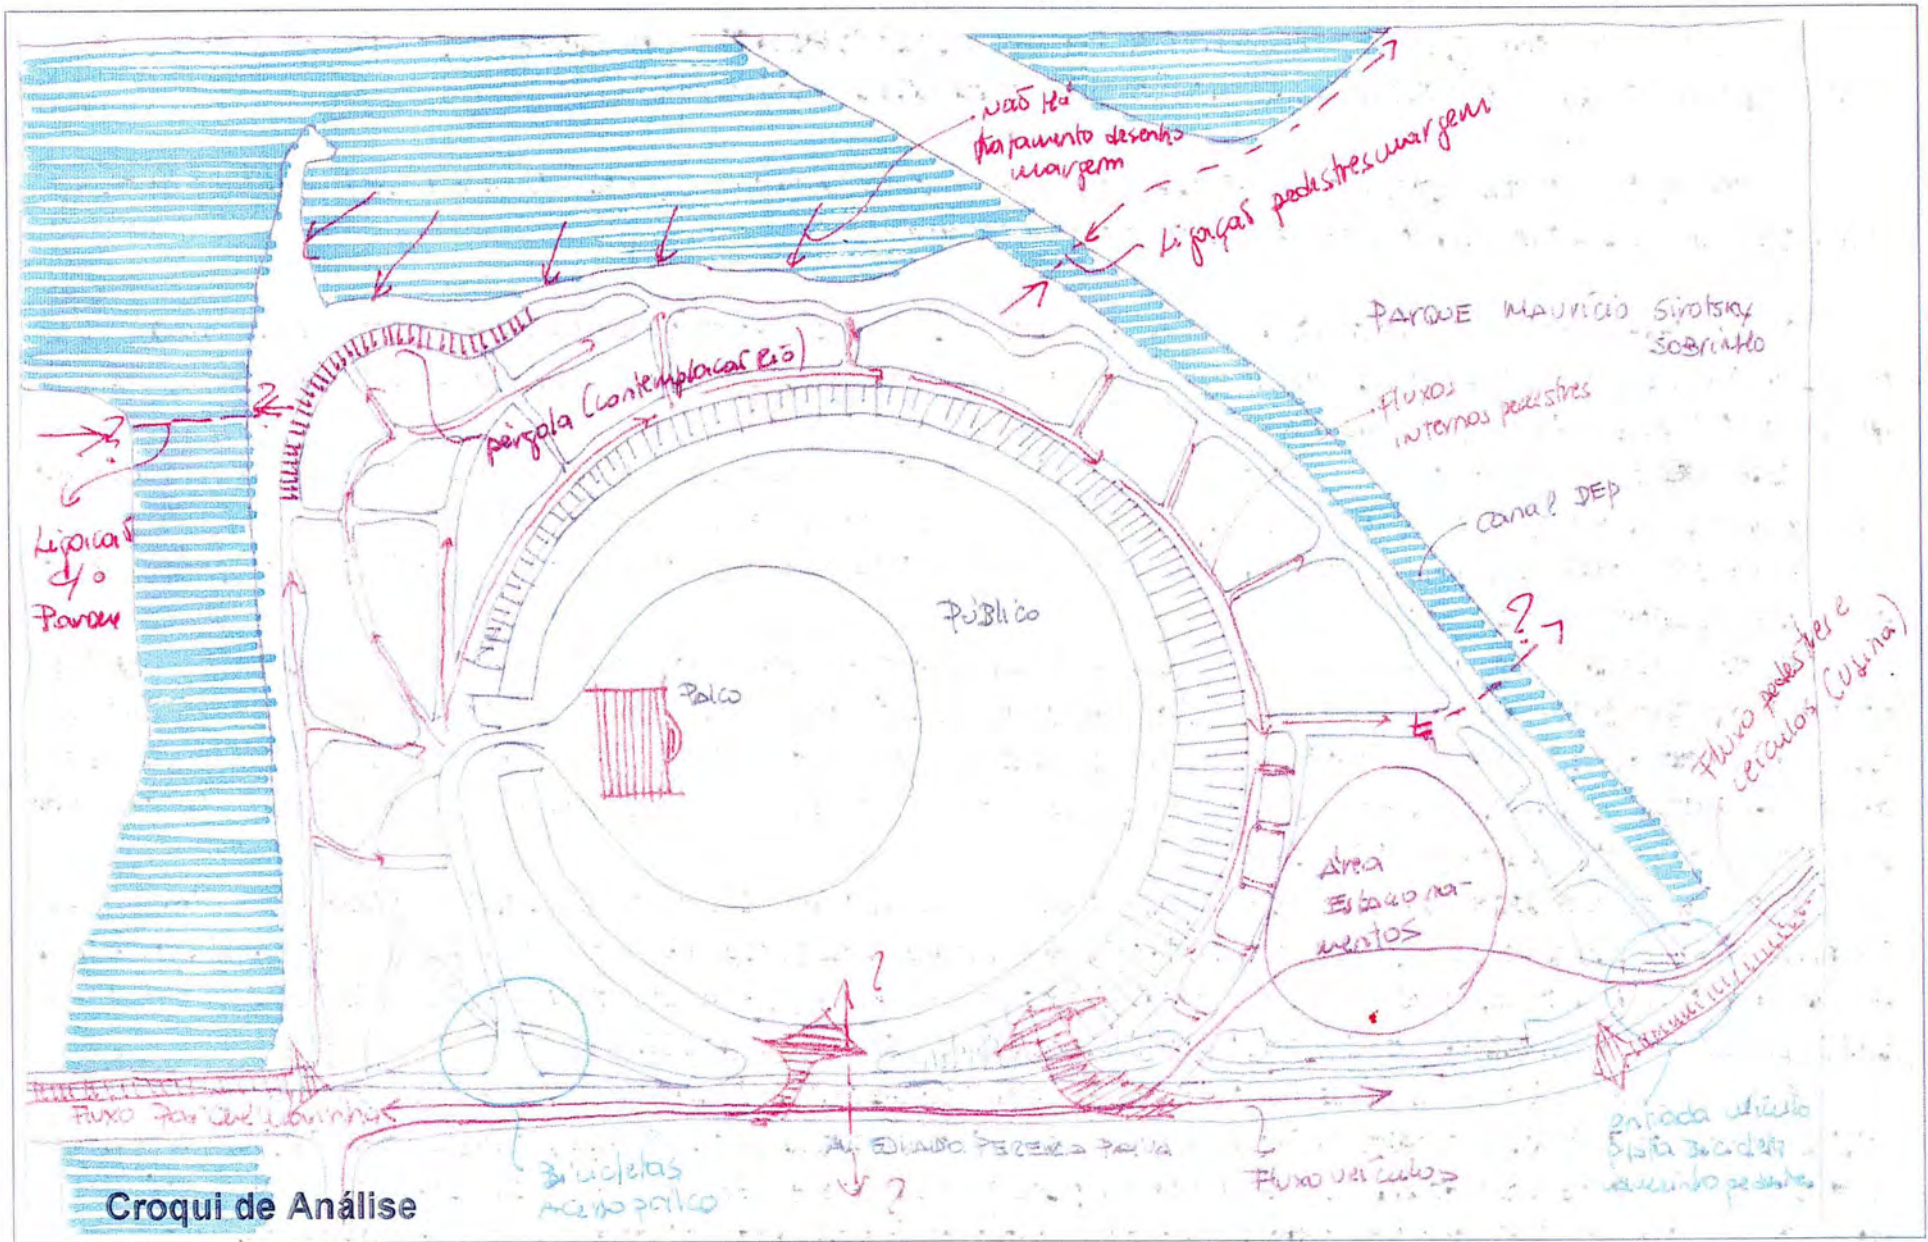 não há
tratamento desenho
margem
Ligação pedestres margem
PARQUE MAURÍCIO Sirotsky
SOBRINHO
Fluxos
internos pedestres
canal DEP
pérgola (contemplação Rio)
?
?
Ligação
c/o
Parque
PÚBLICO
PALCO
?
Fluxo pedestre e
veículos (Usina)
Área
Estaciona-
mentos
?
Fluxo Parque Marinha
Bicicletas
Acesso palco
AV. EDVALDO PEREIRA PAIVA
?
Fluxo veículos
entrada veículo
pista Bicicleta
pedestre
Croqui de Análise